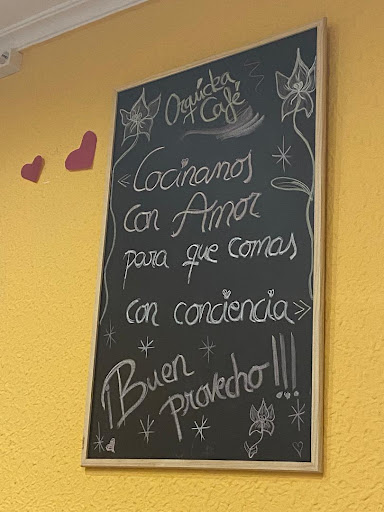 Orquidea
Café
«Cocinamos
con Amor
para que comas
con conciencia»
¡Buen
provecho!!!